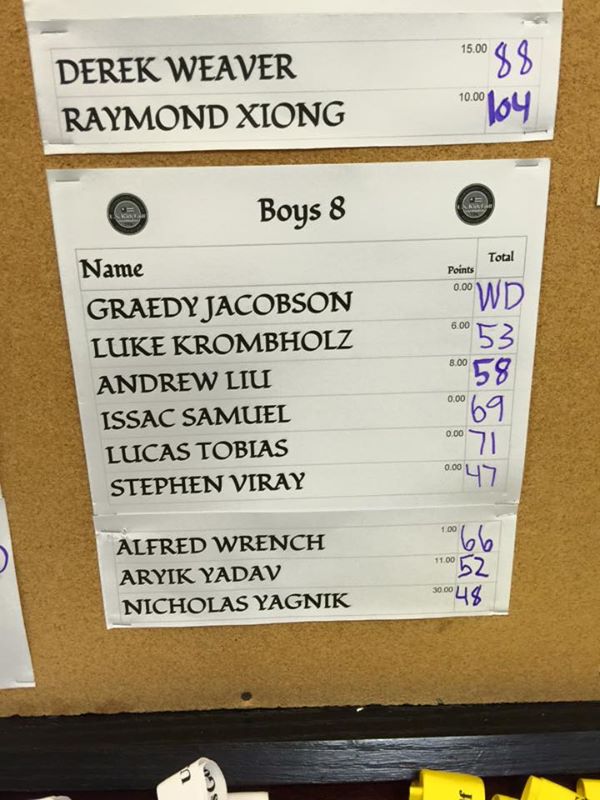 DEREK WEAVER 15.00 88
RAYMOND XIONG 10.00 104
Boys 8
Name Points Total
GRAEDY JACOBSON 0.00 WD
LUKE KROMBHOLZ 6.00 53
ANDREW LIU 8.00 58
ISSAC SAMUEL 0.00 69
LUCAS TOBIAS 0.00 71
STEPHEN VIRAY 0.00 47
ALFRED WRENCH 1.00 66
ARYIK YADAV 11.00 52
NICHOLAS YAGNIK 30.00 48